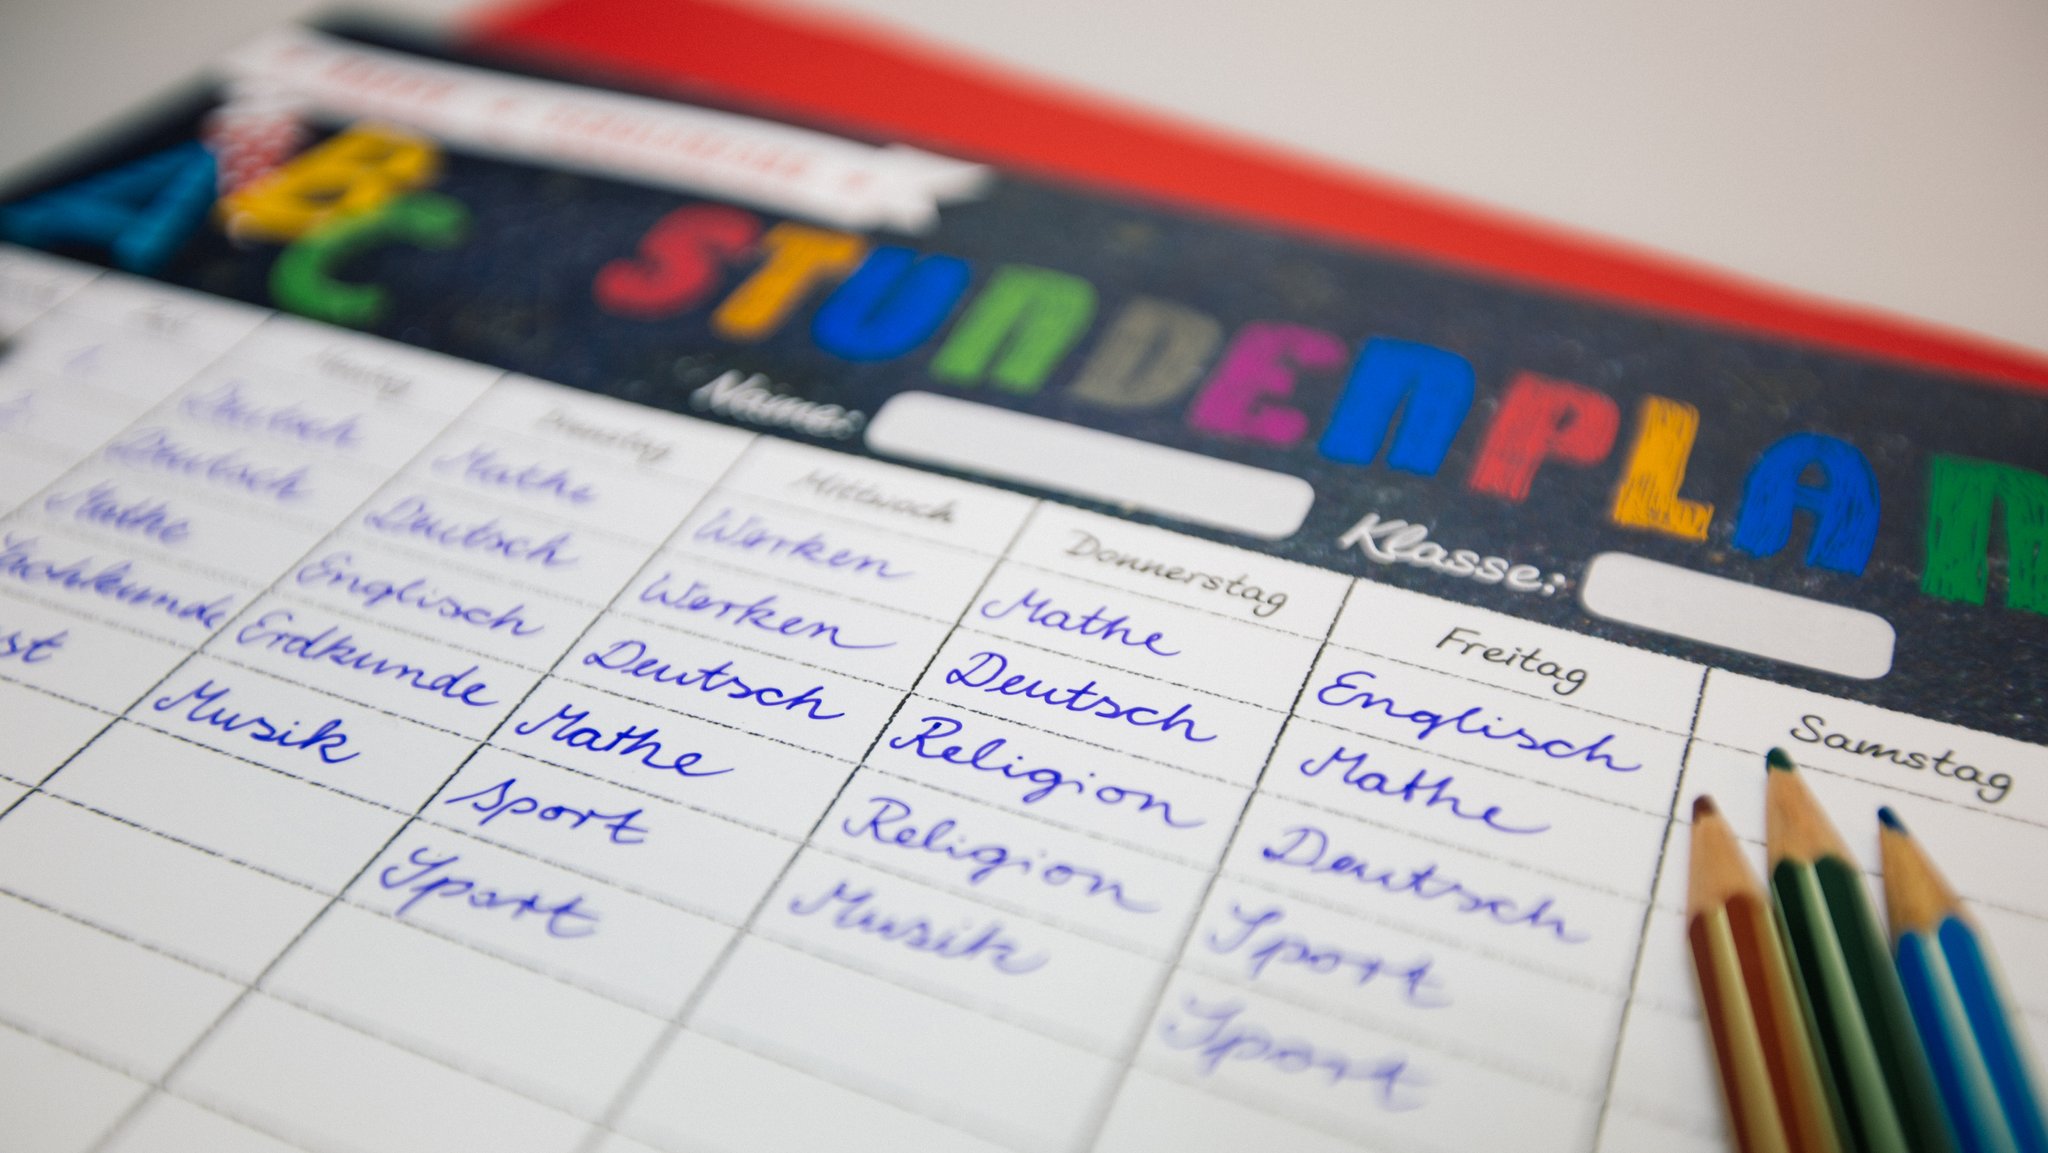 ABC STUNDENPLAN
Name: Klasse:
Montag Dienstag Mittwoch Donnerstag Freitag Samstag
Deutsch Mathe Werken Mathe Englisch
Deutsch Deutsch Werken Deutsch Mathe
Mathe Englisch Deutsch Religion Deutsch
Sachkunde Erdkunde Mathe Religion Sport
st Musik Sport Musik Sport
Sport